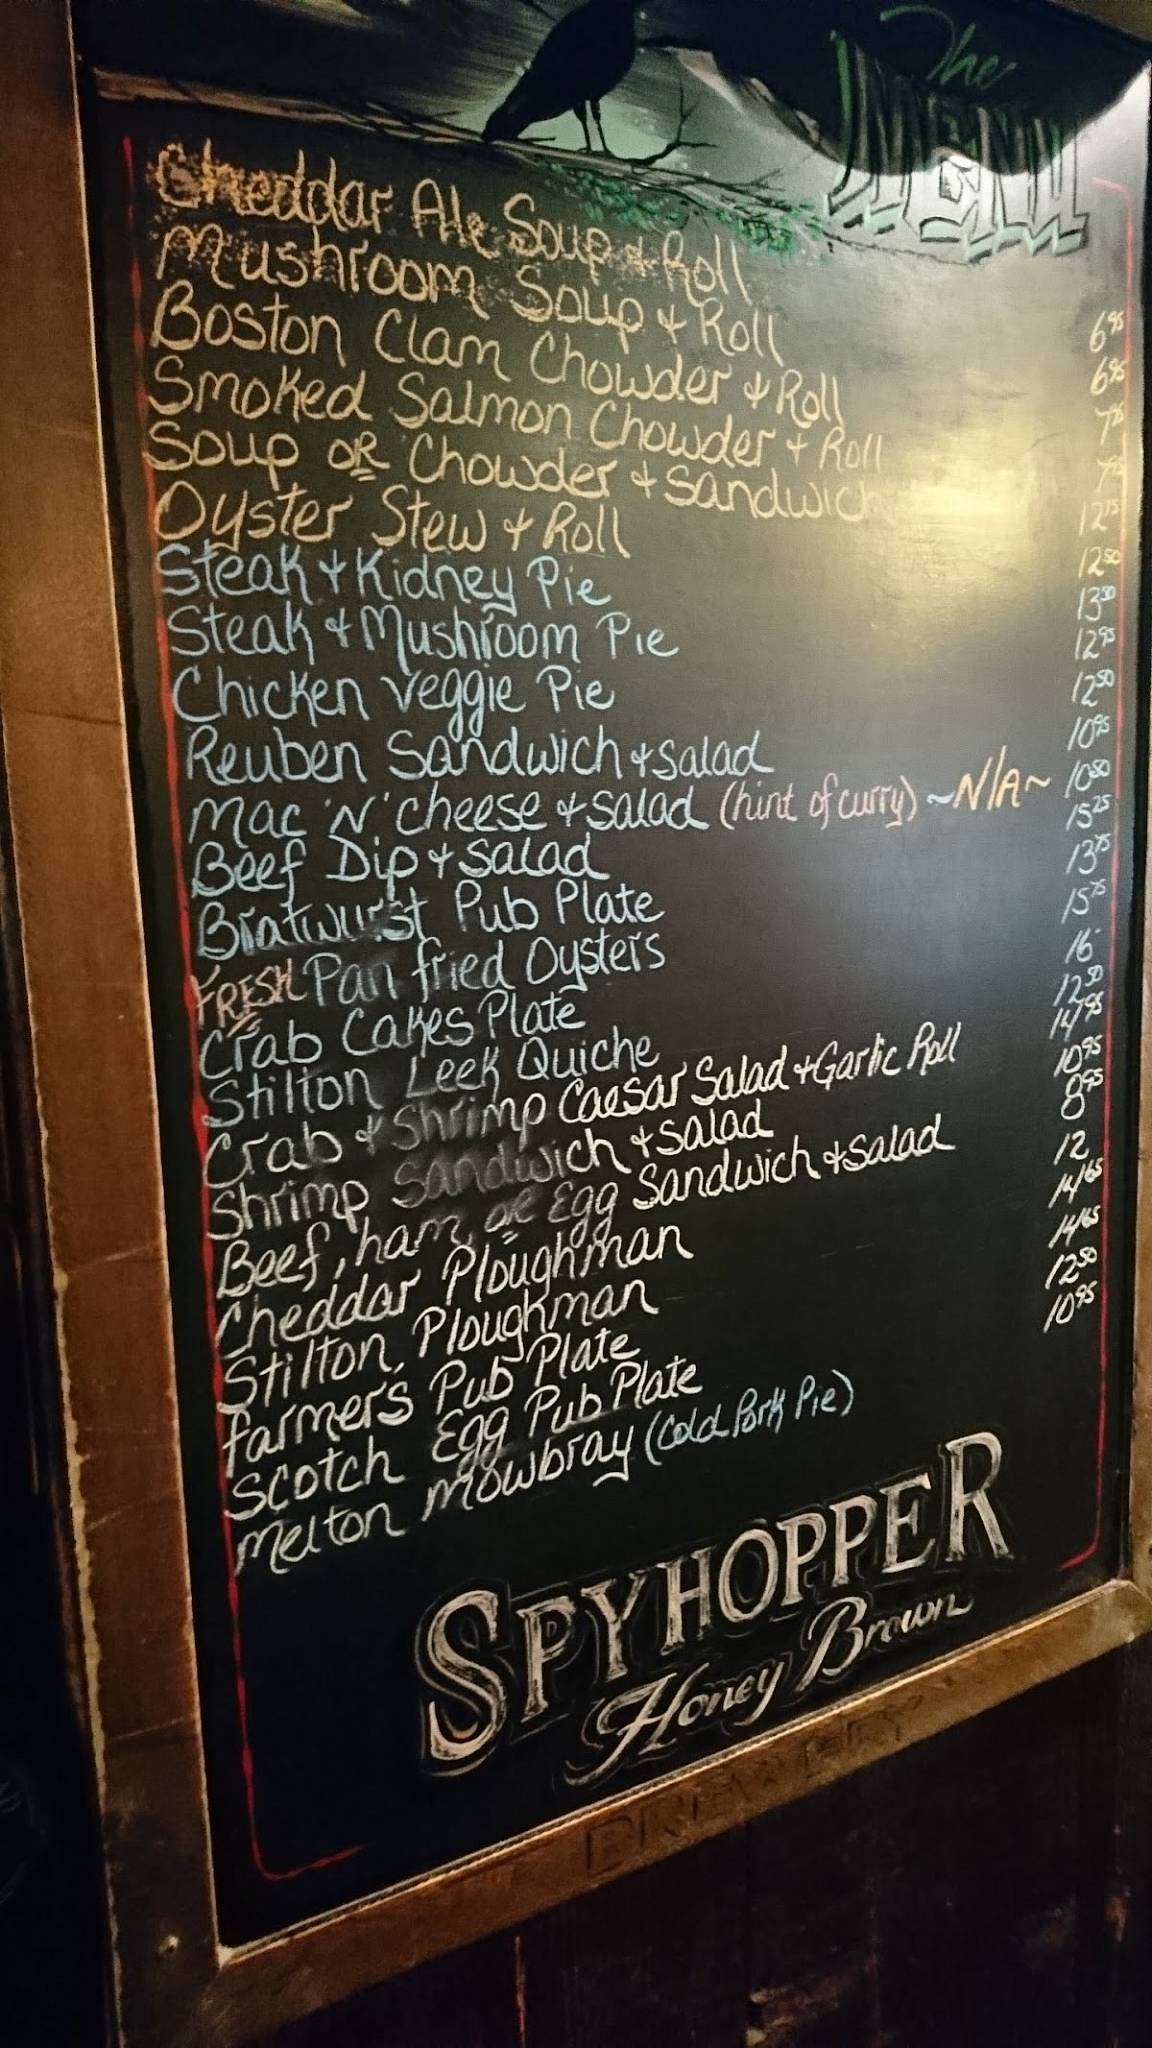 The
MENU
Cheddar Ale Soup & Roll 6.95
Mushroom Soup & Roll 6.95
Boston Clam Chowder & Roll 7.95
Smoked Salmon Chowder & Roll 7.95
Soup OR Chowder & Sandwich 12.75
Oyster Stew & Roll 12.50
Steak & Kidney Pie 13.50
Steak & Mushroom Pie 12.95
Chicken Veggie Pie 12.50
Reuben Sandwich & Salad 10.95
Mac 'N' Cheese & Salad (hint of curry) ~N/A~ 10.50
Beef Dip & Salad 15.25
Bratwurst Pub Plate 13.75
FRESH Pan fried Oysters 15.75
Crab Cakes Plate 16-
Stilton Leek Quiche 12.50
Crab & Shrimp Caesar Salad & Garlic Roll 14.95
Shrimp Sandwich & Salad 10.95
Beef, ham, OR Egg Sandwich & Salad 8.95
Cheddar Ploughman 12
Stilton Ploughman 14.65
Farmers Pub Plate 14.65
Scotch Egg Pub Plate 12.50
Melton Mowbray (Cold Pork Pie) 10.95
SPYHOPPER
Honey Brown